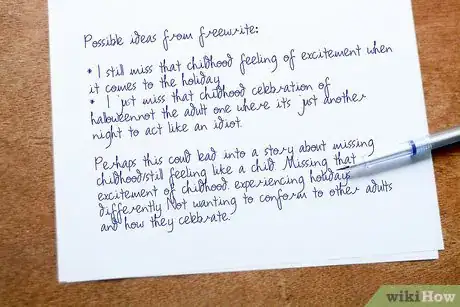 Possible ideas from freewrite:
* I still miss that childhood feeling of excitement when
it comes to the holiday
* I just miss that childhood celebration of
haloweennot the adult one where its just another
night to act like an idiot.
Perhaps this coud lead into a story about missing
childhood/still feeling like a child. Missing that
excitement of childhood. experiencing holidays
differently. Not wanting to conform to other adults
and how they celebrate.
wikiHow